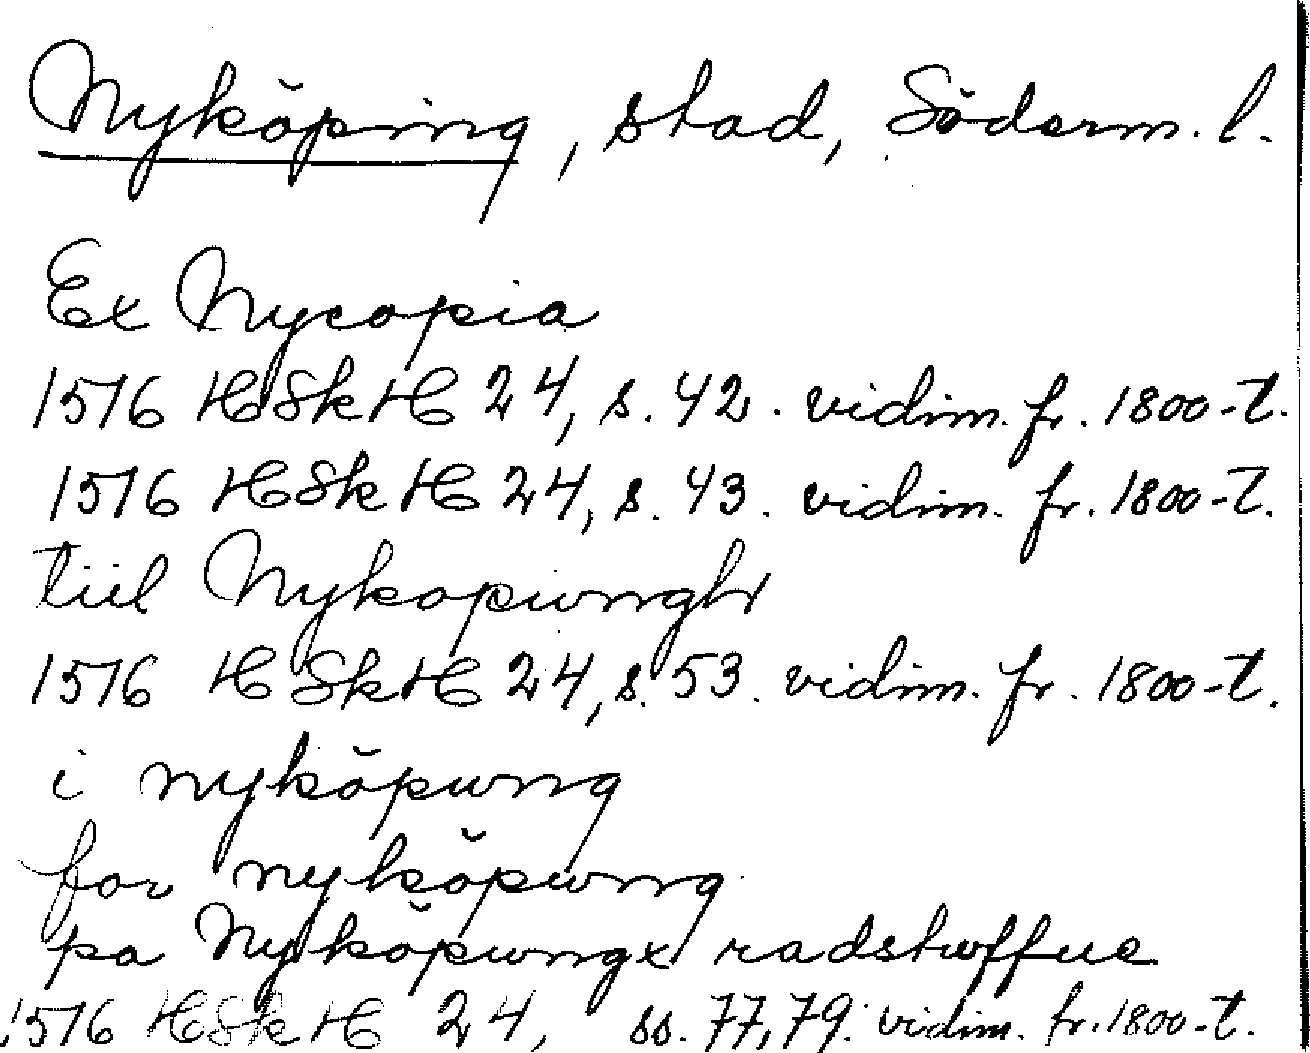 Nyköping, stad, Söderm. l.
Ex Nycopia
1576 HSkH 24, s. 42. vidim. fr. 1800-t.
1576 HSkH 24, s. 43. vidim. fr. 1800-t.
tiil Nykopwngh
1576 HSkH 24, s. 53. vidim. fr. 1800-t.
i nyköpwng
for nyköpwng
pa Nyköpwngx radstwffue
1576 HSkH 24, ss. 77, 79. vidim. fr. 1800-t.